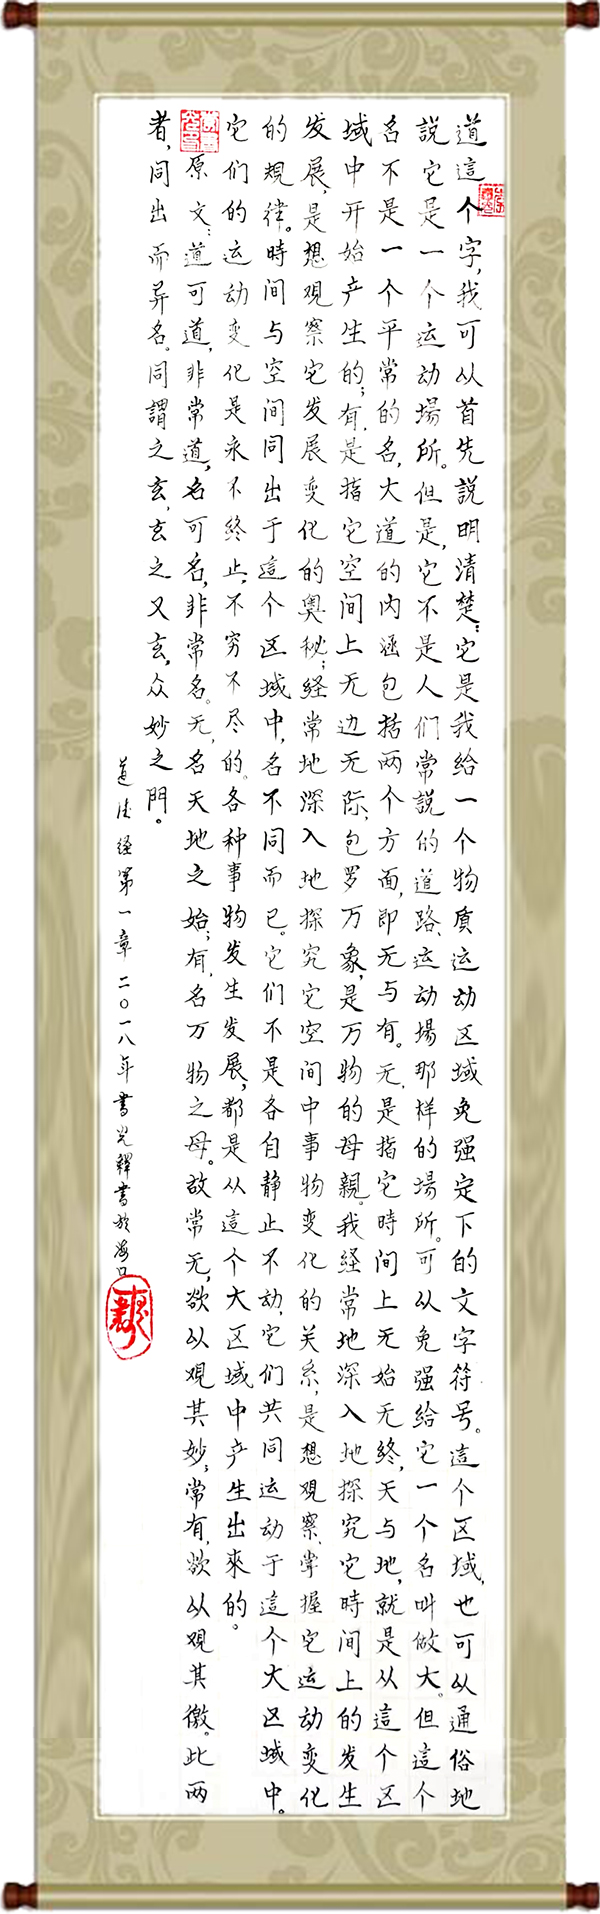 道這个字，我可从首先説明清楚：它是我给一个物质运动区域免强定下的文字符号。這个区域，也可从通俗地
説它是一个运动場所。但是，它不是人们常説的道路、运动場那样的場所。可从免强给它一个名叫做大。但這个
名不是一个平常的名，大道的内涵包括两个方面，即无与有。无，是指它時间上无始无终，天与地，就是从這个区
域中开始产生的；有，是指它空间上无边无际，包罗万象，是万物的母親。我经常地深入地探究它時间上的发生
发展，是想观察它发展变化的奥秘；经常地深入地探究它空间中事物变化的关系，是想观察、掌握它运动变化
的规律。時间与空间同出于這个区域中，名不同而已。它们不是各自静止不动，它们共同运动于這个大区域中。
它们的运动变化是永不终止，不穷不尽的。各种事物发生发展，都是从這个大区域中产生出來的。
原文：道可道，非常道，名可名，非常名。无，名天地之始；有，名万物之母。故常无，欲从观其妙；常有，欲从观其徼。此两
者，同出而异名。同謂之玄，玄之又玄，众妙之門。
道德经第一章 二〇一八年書光釋書於海口